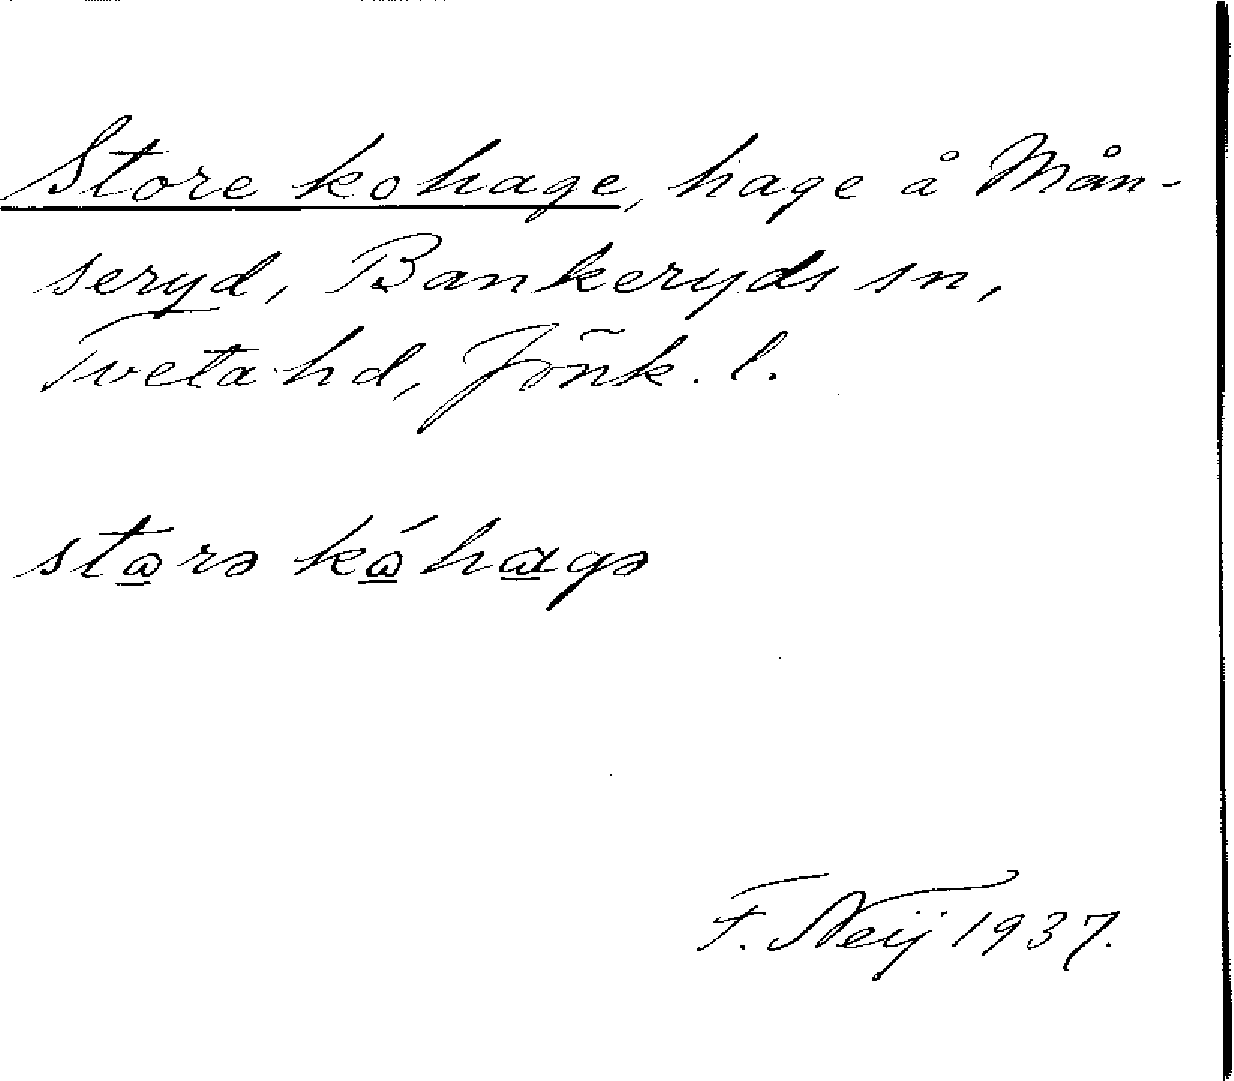 Store kohage, hage å Mån-
seryd, Bankeryds sn,
Tveta hd, Jönk. l.
stɷrə kɷ́hagə
F. Neij 1937.